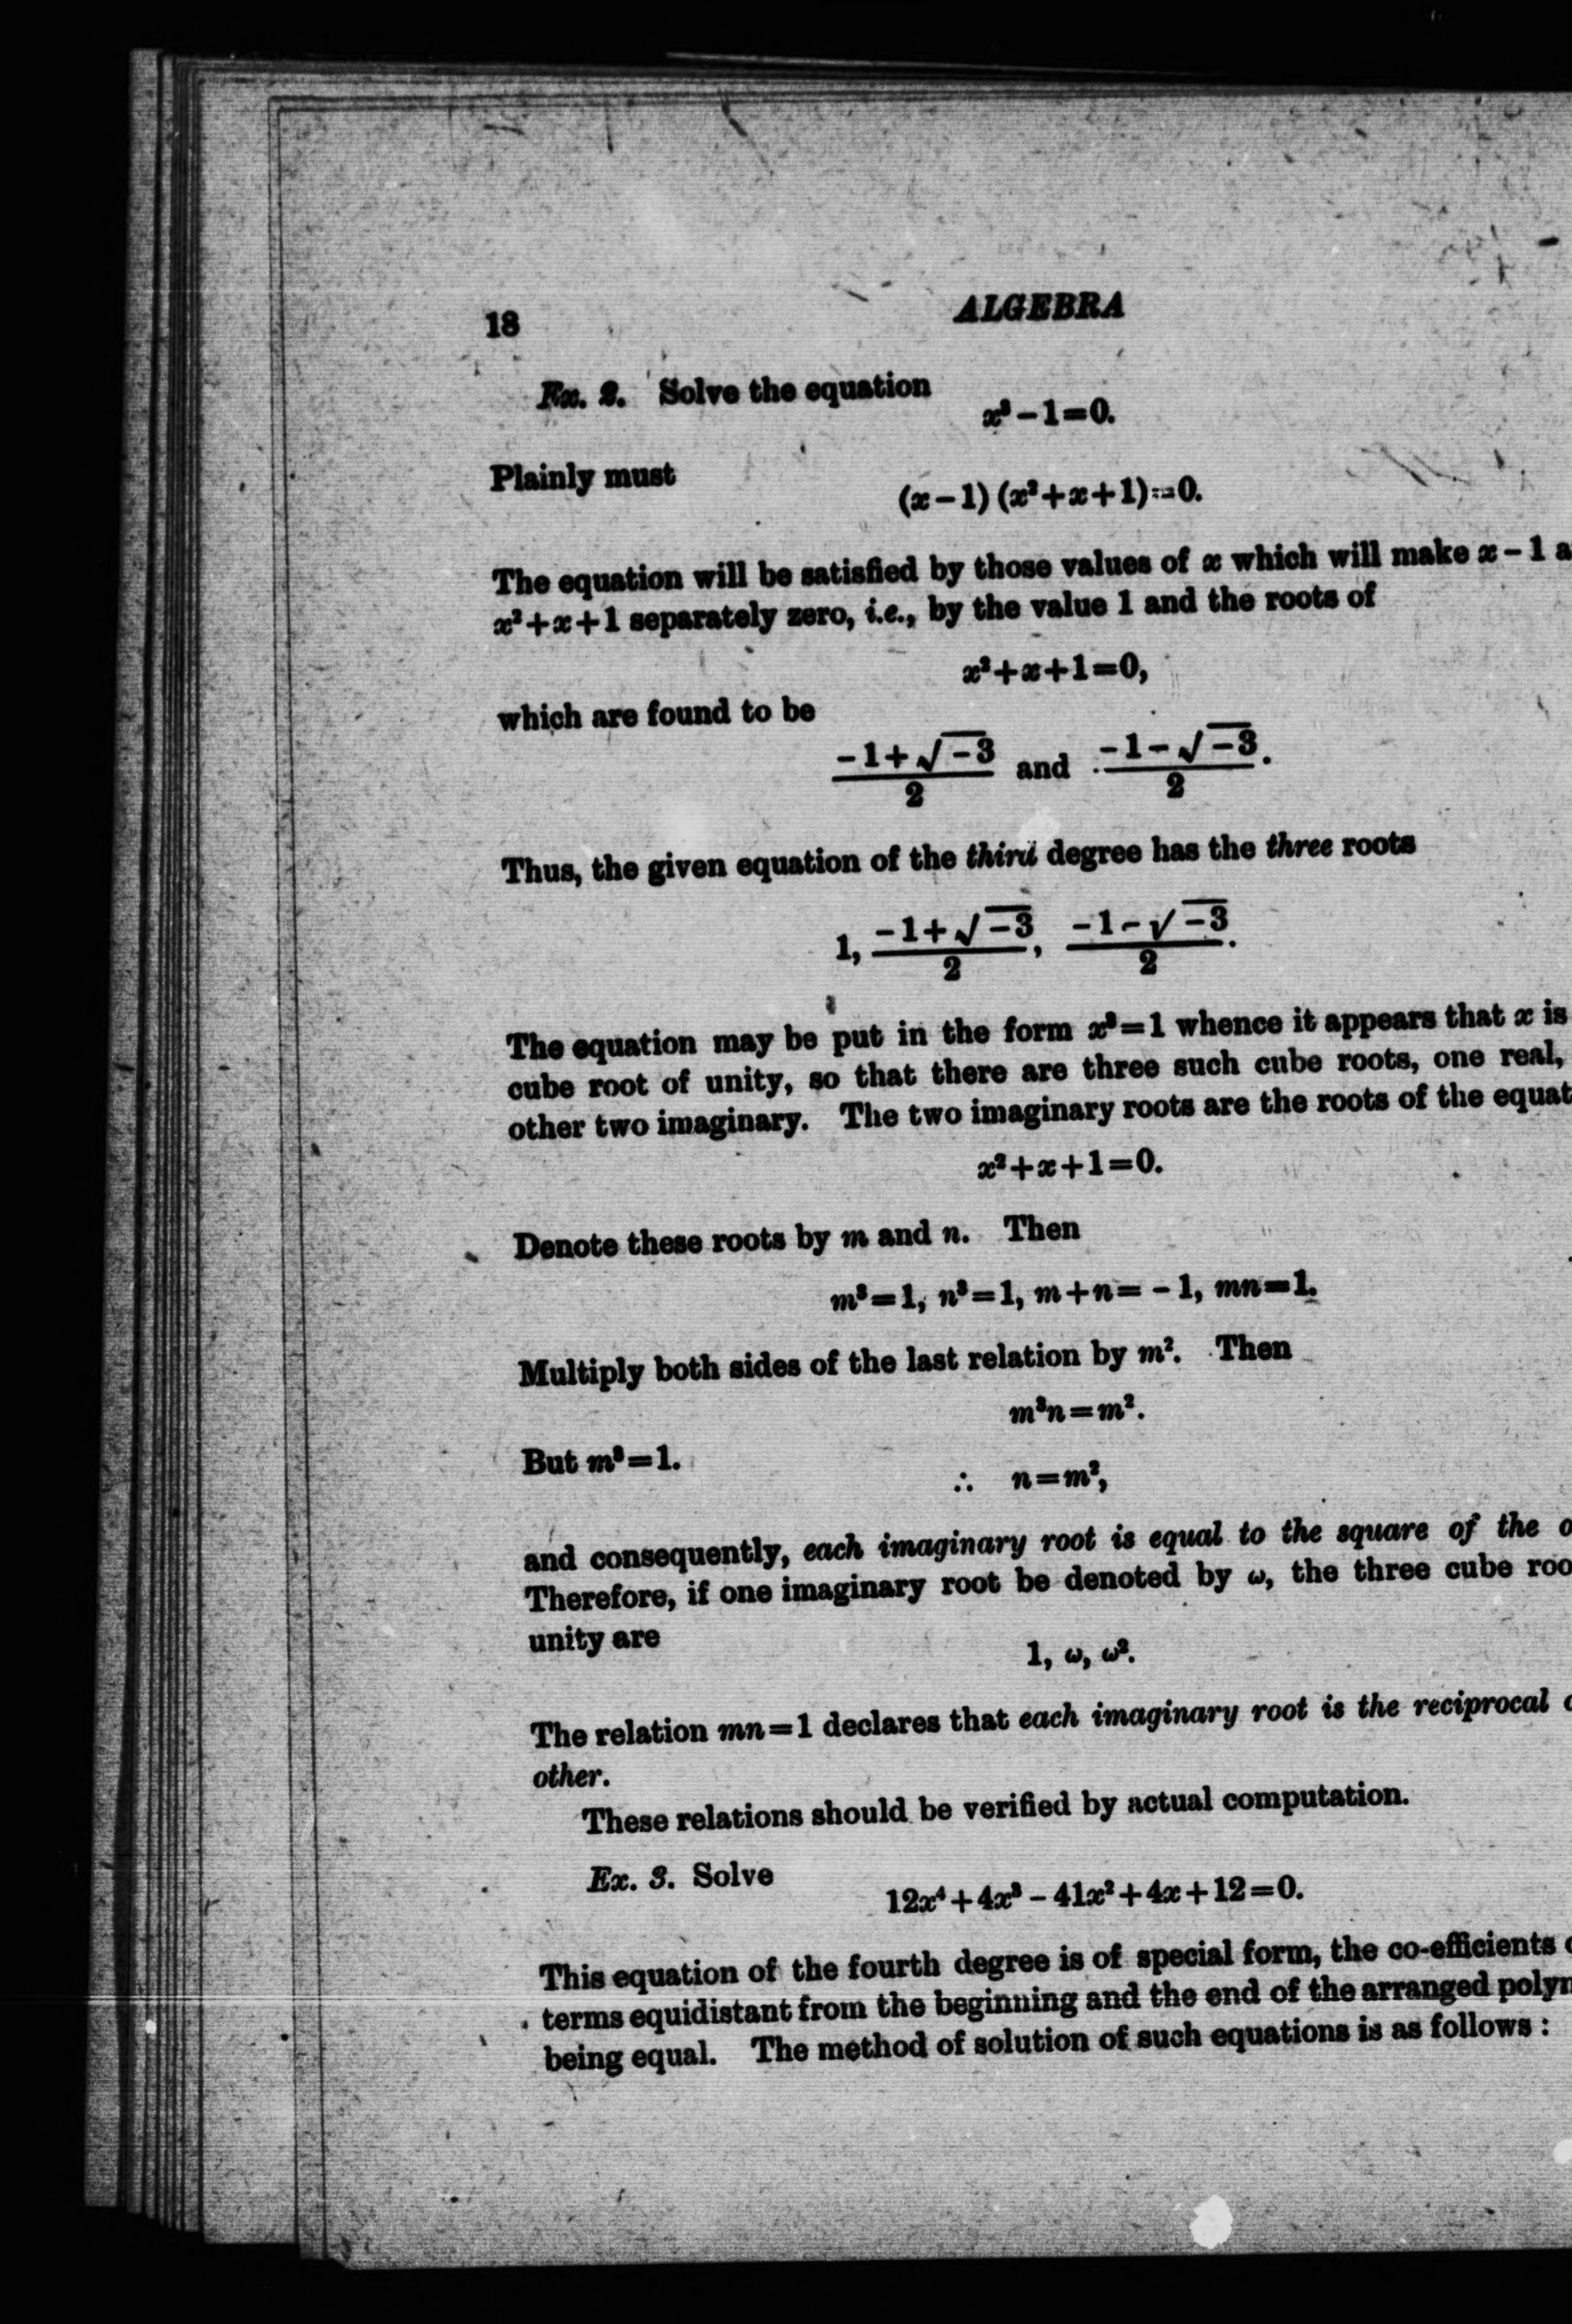 18
ALGEBRA
Ex. 2. Solve the equation
x³ – 1=0.
Plainly must
(x – 1) (x²+x+1)=0.
The equation will be satisfied by those values of x which will make x – 1 a
x²+x+1 separately zero, i.e., by the value 1 and the roots of
x²+x+1=0,
which are found to be
(–1+√–3)/2 and (–1–√–3)/2.
Thus, the given equation of the third degree has the three roots
1, (–1+√–3)/2, (–1–√–3)/2.
The equation may be put in the form x³=1 whence it appears that x is
cube root of unity, so that there are three such cube roots, one real,
other two imaginary. The two imaginary roots are the roots of the equat
x²+x+1=0.
Denote these roots by m and n. Then
m³=1, n³=1, m+n= –1, mn=1.
Multiply both sides of the last relation by m². Then
m³n=m².
But m³=1.
∴ n=m²,
and consequently, each imaginary root is equal to the square of the o
Therefore, if one imaginary root be denoted by ω, the three cube roo
unity are
1, ω, ω².
The relation mn=1 declares that each imaginary root is the reciprocal o
other.
These relations should be verified by actual computation.
Ex. 3. Solve
12x⁴+4x³ – 41x²+4x+12=0.
This equation of the fourth degree is of special form, the co-efficients o
terms equidistant from the beginning and the end of the arranged polyn
being equal. The method of solution of such equations is as follows :